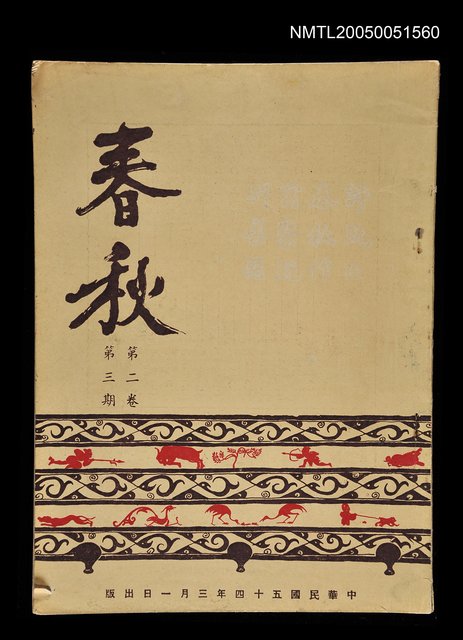 NMTL20050051560
春秋
第二卷
第三期
中華民國五十四年三月一日出版